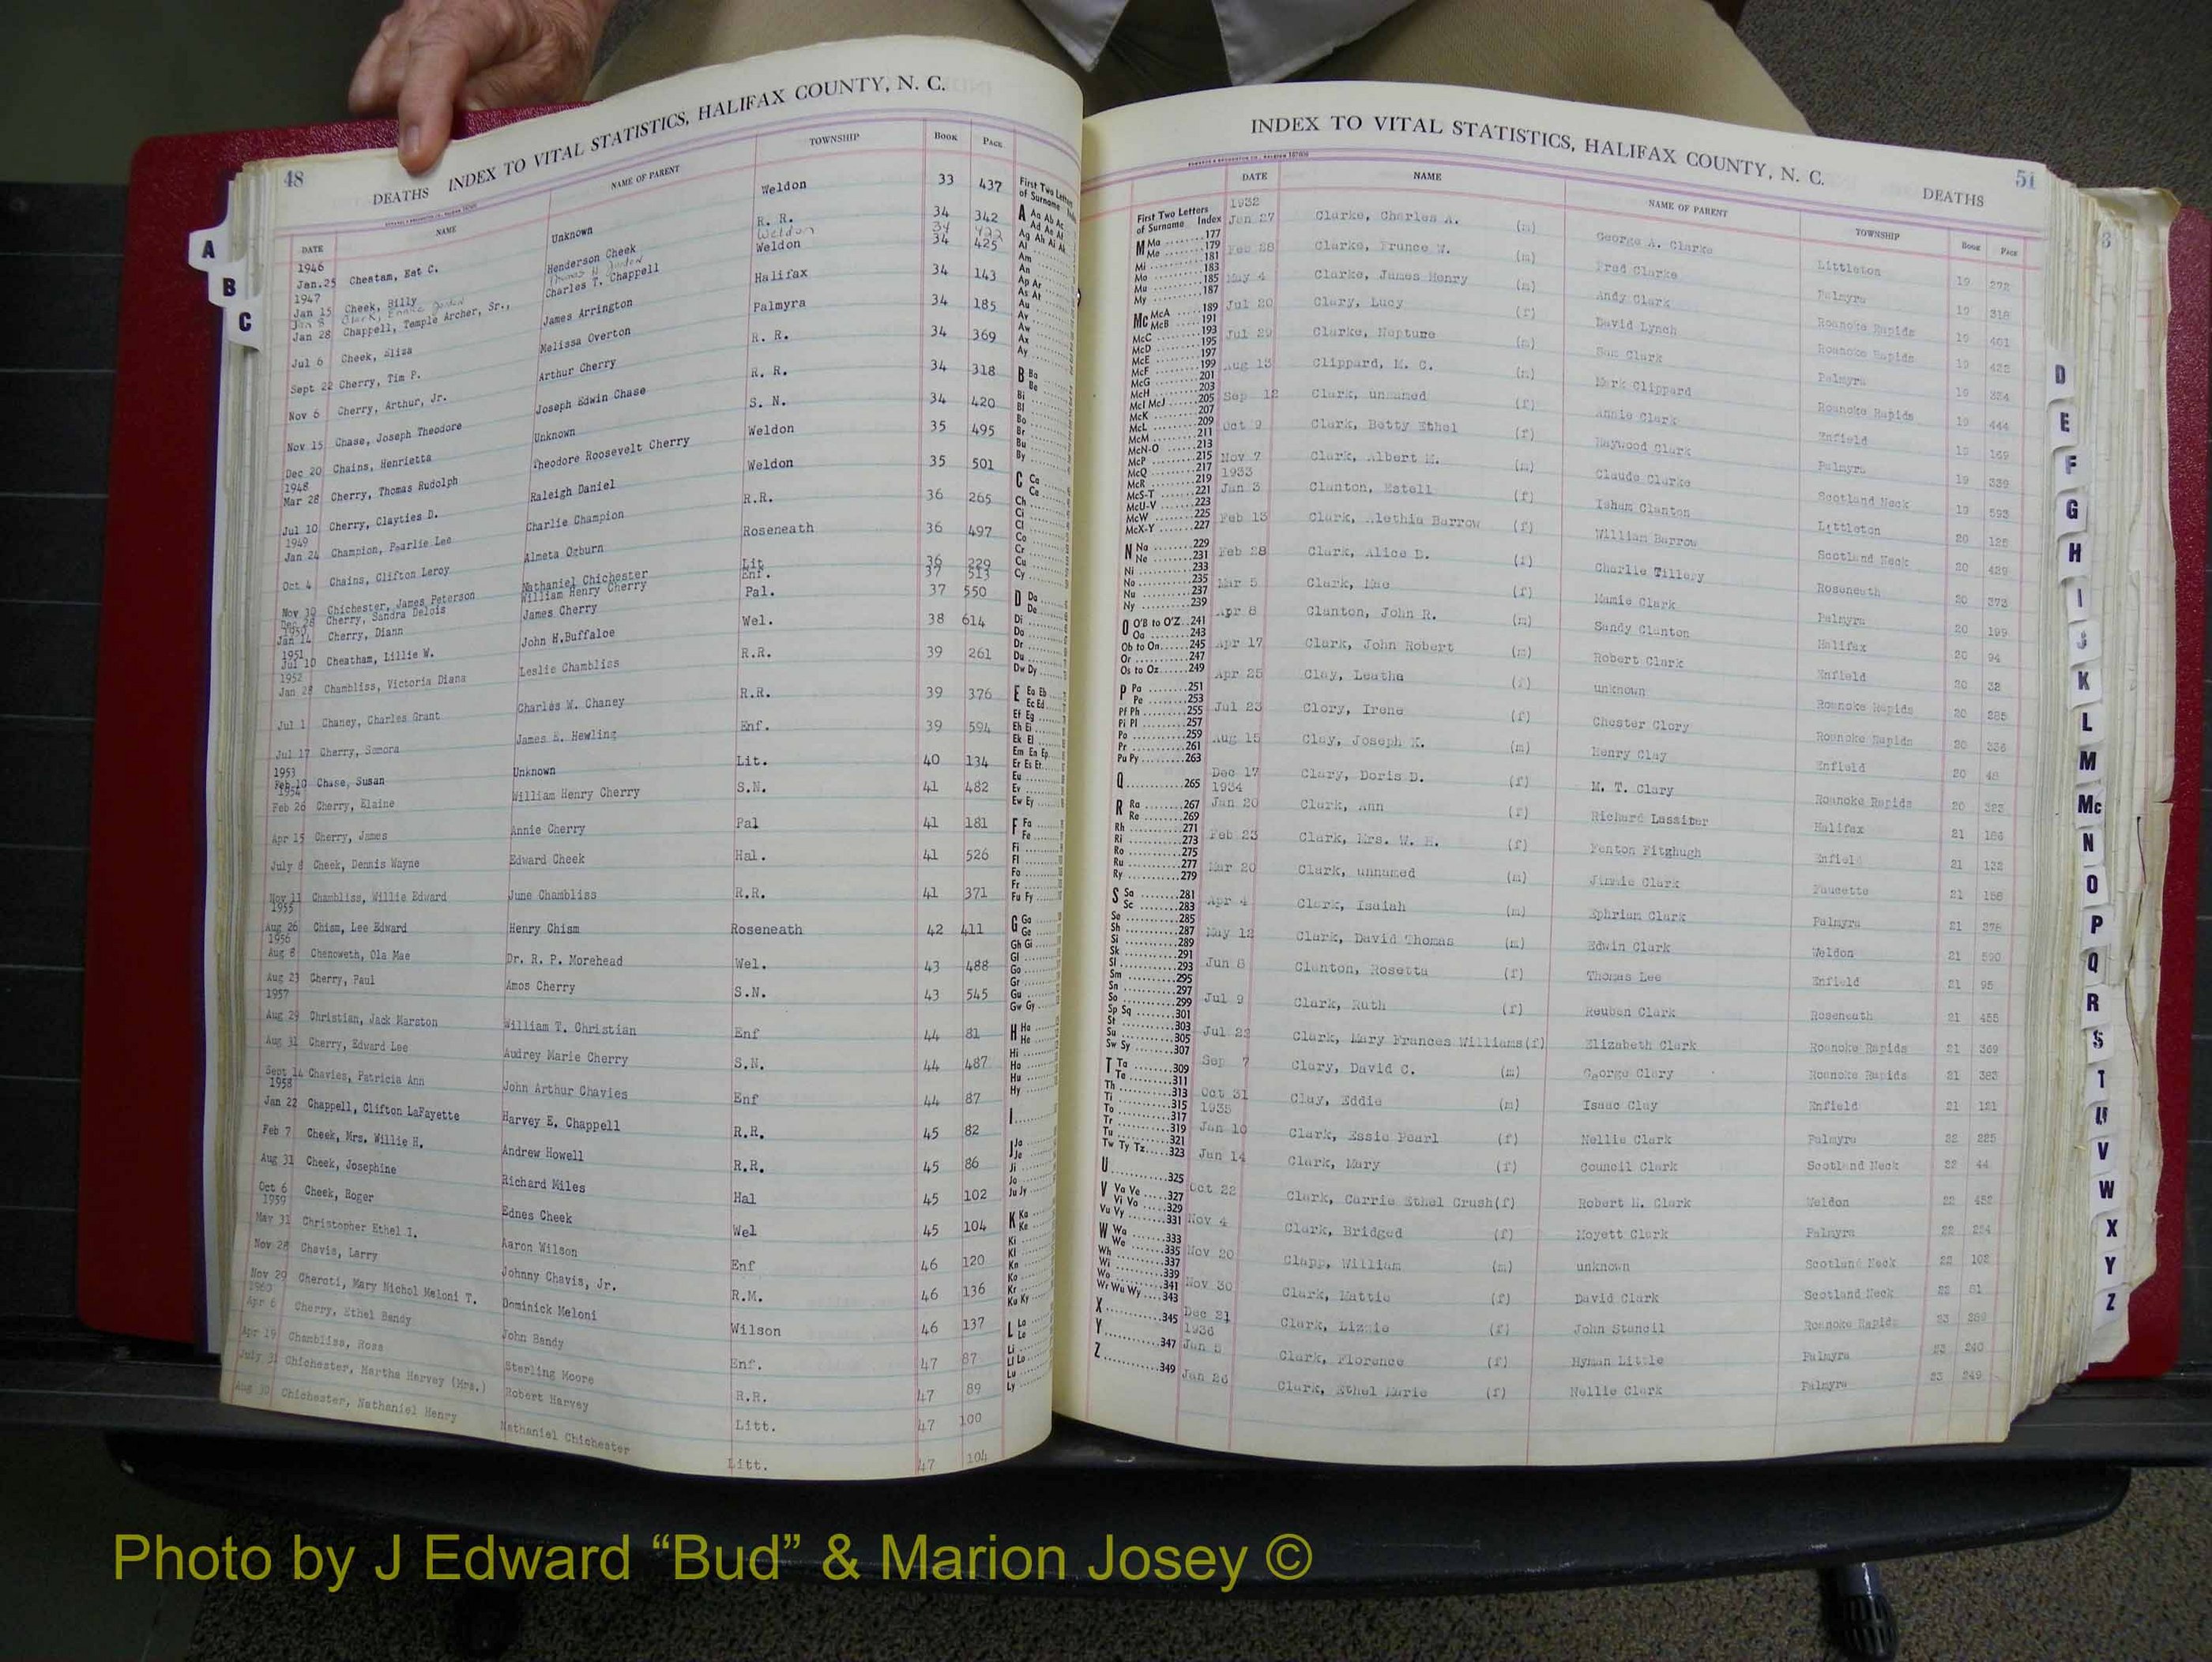 48
DEATHS INDEX TO VITAL STATISTICS, HALIFAX COUNTY, N. C.
DATE NAME NAME OF PARENT TOWNSHIP BOOK PAGE
1946
Jan.25 Cheatam, Eat C. Unknown Weldon 33 437
1947
Jan 15 Cheek, Billy Henderson Cheek R. R. 34 342
Weldon 34 422
Jan 28 Chappell, Temple Archer, Sr., Charles T. Chappell Weldon 34 425
Jul 6 Cheek, Eliza James Arrington Halifax 34 143
Sept 22 Cherry, Tim P. Melissa Overton Palmyra 34 185
Nov 6 Cherry, Arthur, Jr. Arthur Cherry R. R. 34 369
Nov 15 Chase, Joseph Theodore Joseph Edwin Chase R. R. 34 318
Dec 20 Chains, Henrietta Unknown S. N. 34 420
1948
Mar 28 Cherry, Thomas Rudolph Theodore Roosevelt Cherry Weldon 35 495
Jul 10 Cherry, Clayties D. Raleigh Daniel Weldon 35 501
1949
Jan 24 Champion, Pearlie Lee Charlie Champion R.R. 36 265
Oct 4 Chains, Clifton Leroy Almeta Ogburn Roseneath 36 497
Nov 30 Chichester, James Peterson Nathaniel Chichester Lit 36 229
Dec 28 Cherry, Sandra Delois William Henry Cherry Enf. 37 513
1950
Jan 14 Cherry, Diann James Cherry Pal. 37 550
1951
Jul 10 Cheatham, Lillie W. John H.Buffaloe Wel. 38 614
1952
Jan 28 Chambliss, Victoria Diana Leslie Chambliss R.R. 39 261
Jul 1 Chaney, Charles Grant Charles W. Chaney R.R. 39 376
Jul 17 Cherry, Somora James E. Hewling Enf. 39 594
1953
Feb 10 Chase, Susan Unknown Lit. 40 134
1954
Feb 26 Cherry, Elaine William Henry Cherry S.N. 41 482
Apr 15 Cherry, James Annie Cherry Pal 41 181
July 8 Cheek, Dennis Wayne Edward Cheek Hal. 41 526
Nov 11 Chambliss, Willie Edward June Chambliss R.R. 41 371
1955
Aug 26 Chism, Lee Edward Henry Chism Roseneath 42 411
1956
Aug 8 Chenoweth, Ola Mae Dr. R. P. Morehead Wel. 43 488
Aug 23 Cherry, Paul Amos Cherry S.N. 43 545
1957
Aug 29 Christian, Jack Marston William T. Christian Enf 44 81
Aug 31 Cherry, Edward Lee Audrey Marie Cherry S.N. 44 487
Sept 14 Chavies, Patricia Ann John Arthur Chavies Enf 44 87
1958
Jan 22 Chappell, Clifton LaFayette Harvey E. Chappell R.R. 45 82
Feb 7 Cheek, Mrs. Willie H. Andrew Howell R.R. 45 86
Aug 31 Cheek, Josephine Richard Miles Hal 45 102
Oct 6 Cheek, Roger Ednes Cheek Wel 45 104
1959
May 31 Christopher Ethel I. Aaron Wilson Enf 46 120
Nov 28 Chavis, Larry Johnny Chavis, Jr. R.M. 46 136
Nov 29 Cheroti, Mary Nichol Meloni T. Dominick Meloni Wilson 46 137
1960
Apr 6 Cherry, Ethel Bandy John Bandy Enf. 47 87
Apr 19 Chambliss, Rosa Sterling Moore R.R. 47 89
July 31 Chichester, Martha Harvey (Mrs.) Robert Harvey Litt. 47 100
Aug 30 Chichester, Nathaniel Henry Nathaniel Chichester Litt. 47 104
A
B
C
INDEX TO VITAL STATISTICS, HALIFAX COUNTY, N. C.
DEATHS 51
DATE NAME NAME OF PARENT TOWNSHIP BOOK PAGE
1932
Jan 27 Clarke, Charles A. (m) George A. Clarke Littleton 19 272
Feb 28 Clarke, Frunce W. (m) Fred Clarke Palmyra 19 318
May 4 Clarke, James Henry (m) Andy Clark Roanoke Rapids 19 401
Jul 20 Clary, Lucy (f) David Lynch Roanoke Rapids 19 422
Jul 29 Clarke, Nepture (m) Sam Clark Palmyra 19 334
Aug 13 Clippard, M. C. (m) Mark Clippard Roanoke Rapids 19 444
Sep 12 Clark, unnamed (f) Annie Clark Enfield 19 169
Oct 9 Clark, Betty Ethel (f) Haywood Clark Palmyra 19 339
Nov 7 Clark, Albert M. (m) Claude Clarke Scotland Neck 19 593
1933
Jan 3 Clanton, Estell (f) Isham Clanton Littleton 20 125
Feb 13 Clark, Alethia Barrow (f) William Barrow Scotland Neck 20 429
Feb 28 Clark, Alice D. (f) Charlie Tillery Roseneath 20 373
Mar 5 Clark, Mae (f) Mamie Clark Palmyra 20 199
Apr 8 Clanton, John R. (m) Sandy Clanton Halifax 20 94
Apr 17 Clark, John Robert (m) Robert Clark Enfield 20 32
Apr 25 Clay, Leatha (f) unknown Roanoke Rapids 20 285
Jul 23 Clory, Irene (f) Chester Clory Roanoke Rapids 20 336
Aug 15 Clay, Joseph K. (m) Henry Clay Enfield 20 48
Dec 17 Clary, Doris D. (f) M. T. Clary Roanoke Rapids 20 383
1934
Jan 20 Clark, Ann (f) Richard Lassiter Halifax 21 186
Feb 23 Clark, Mrs. W. H. (f) Fenton Fitzhugh Enfield 21 132
Mar 20 Clark, unnamed (m) Jimmie Clark Faucette 21 156
Apr 4 Clark, Isaiah (m) Ephriam Clark Palmyra 21 275
May 12 Clark, David Thomas (m) Edwin Clark Weldon 21 590
Jun 8 Clanton, Rosetta (f) Thomas Lee Enfield 21 95
Jul 9 Clark, Ruth (f) Reuben Clark Roseneath 21 455
Jul 22 Clark, Mary Frances Williams(f) Elizabeth Clark Roanoke Rapids 21 369
Sep 7 Clary, David C. (m) George Clary Roanoke Rapids 21 383
Oct 31 Clay, Eddie (m) Isaac Clay Enfield 21 121
1935
Jan 10 Clark, Essie Pearl (f) Nellie Clark Palmyra 22 225
Jan 14 Clark, Mary (f) Council Clark Scotland Neck 22 44
Oct 22 Clark, Carrie Ethel Crush(f) Robert H. Clark Weldon 22 452
Nov 4 Clark, Bridged (f) Moyett Clark Palmyra 22 254
Nov 20 Clapp, William (m) unknown Scotland Neck 22 102
Nov 30 Clark, Mattie (f) David Clark Scotland Neck 22 81
Dec 21 Clark, Lizzie (f) John Stancil Roanoke Rapids 23 289
1936
Jan 5 Clark, Florence (f) Hyman Little Palmyra 23 240
Jan 26 Clark, Ethel Marie (f) Nellie Clark Palmyra 23 249
First Two Letters of Surname Index
M Ma 177
Me 179
Mi 181
Mo 183
Mu 185
My 187
Mc McA 189
McB 191
McC 193
McD 195
McE 197
McF 199
McG 201
McH 203
McI McJ 205
McK 207
McL 209
McM 211
McN-O 213
McP 215
McQ 217
McR 219
McS-T 221
McU-V 223
McW 225
McX-Y 227
N Na 229
Ne 231
Ni 233
No 235
Nu 237
Ny 239
O O'B to O'Z 241
Oa 243
Ob to On 245
Or 247
Os to Oz 249
P Pa 251
Pe 253
Pf Ph 255
Pi Pl 257
Po 259
Pr 261
Pu Py 263
Q 265
R Ra 267
Re 269
Rh 271
Ri 273
Ro 275
Ru 277
Ry 279
S Sa 281
Sc 283
Se 285
Sh 287
Si 289
Sk 291
Sl 293
Sm 295
Sn 297
So 299
Sp Sq 301
St 303
Su 305
Sw Sy 307
T Ta 309
Te 311
Th 313
Ti 315
To 317
Tr 319
Tu 321
Tw Ty Tz 323
U 325
V Va Ve 327
Vi Vo 329
Vu Vy 331
W Wa 333
We 335
Wh 337
Wi 339
Wo 341
Wr Wu Wy 343
X 345
Y 347
Z 349
D
E
F
G
H
I
J
K
L
M
Mc
N
O
P
Q
R
S
T
U
V
W
X
Y
Z
Photo by J Edward “Bud” & Marion Josey ©